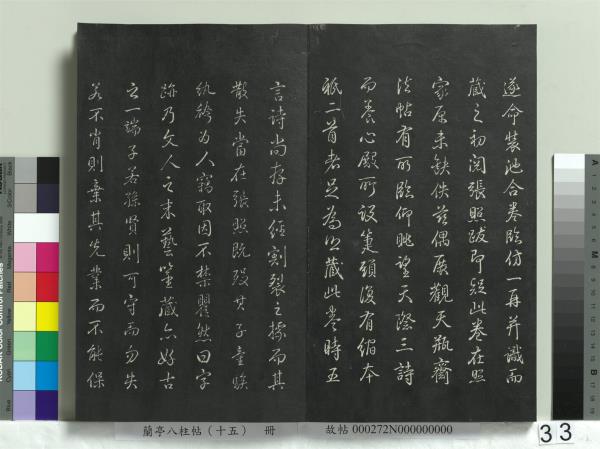 遂命裝池合卷臨仿一再并識而
藏之初閱張照跋即疑此卷在照
家原未缺佚茲偶展觀天瓶齋
法帖有所臨仰眺望天際三詩
而養心殿所設筆頭復有縮本
祇二首者足為收藏此卷時五
言詩尚存未經割裂之據而其
散失當在張照既歿其子童騃
紈袴為人竊取因不禁瞿然曰字
跡乃文人之末藝篋藏亦好古
之一端子孫賢則可守而勿失
若不肖則棄其先業而不能保
蘭亭八柱帖（十五） 冊
故帖 000272N000000000
33